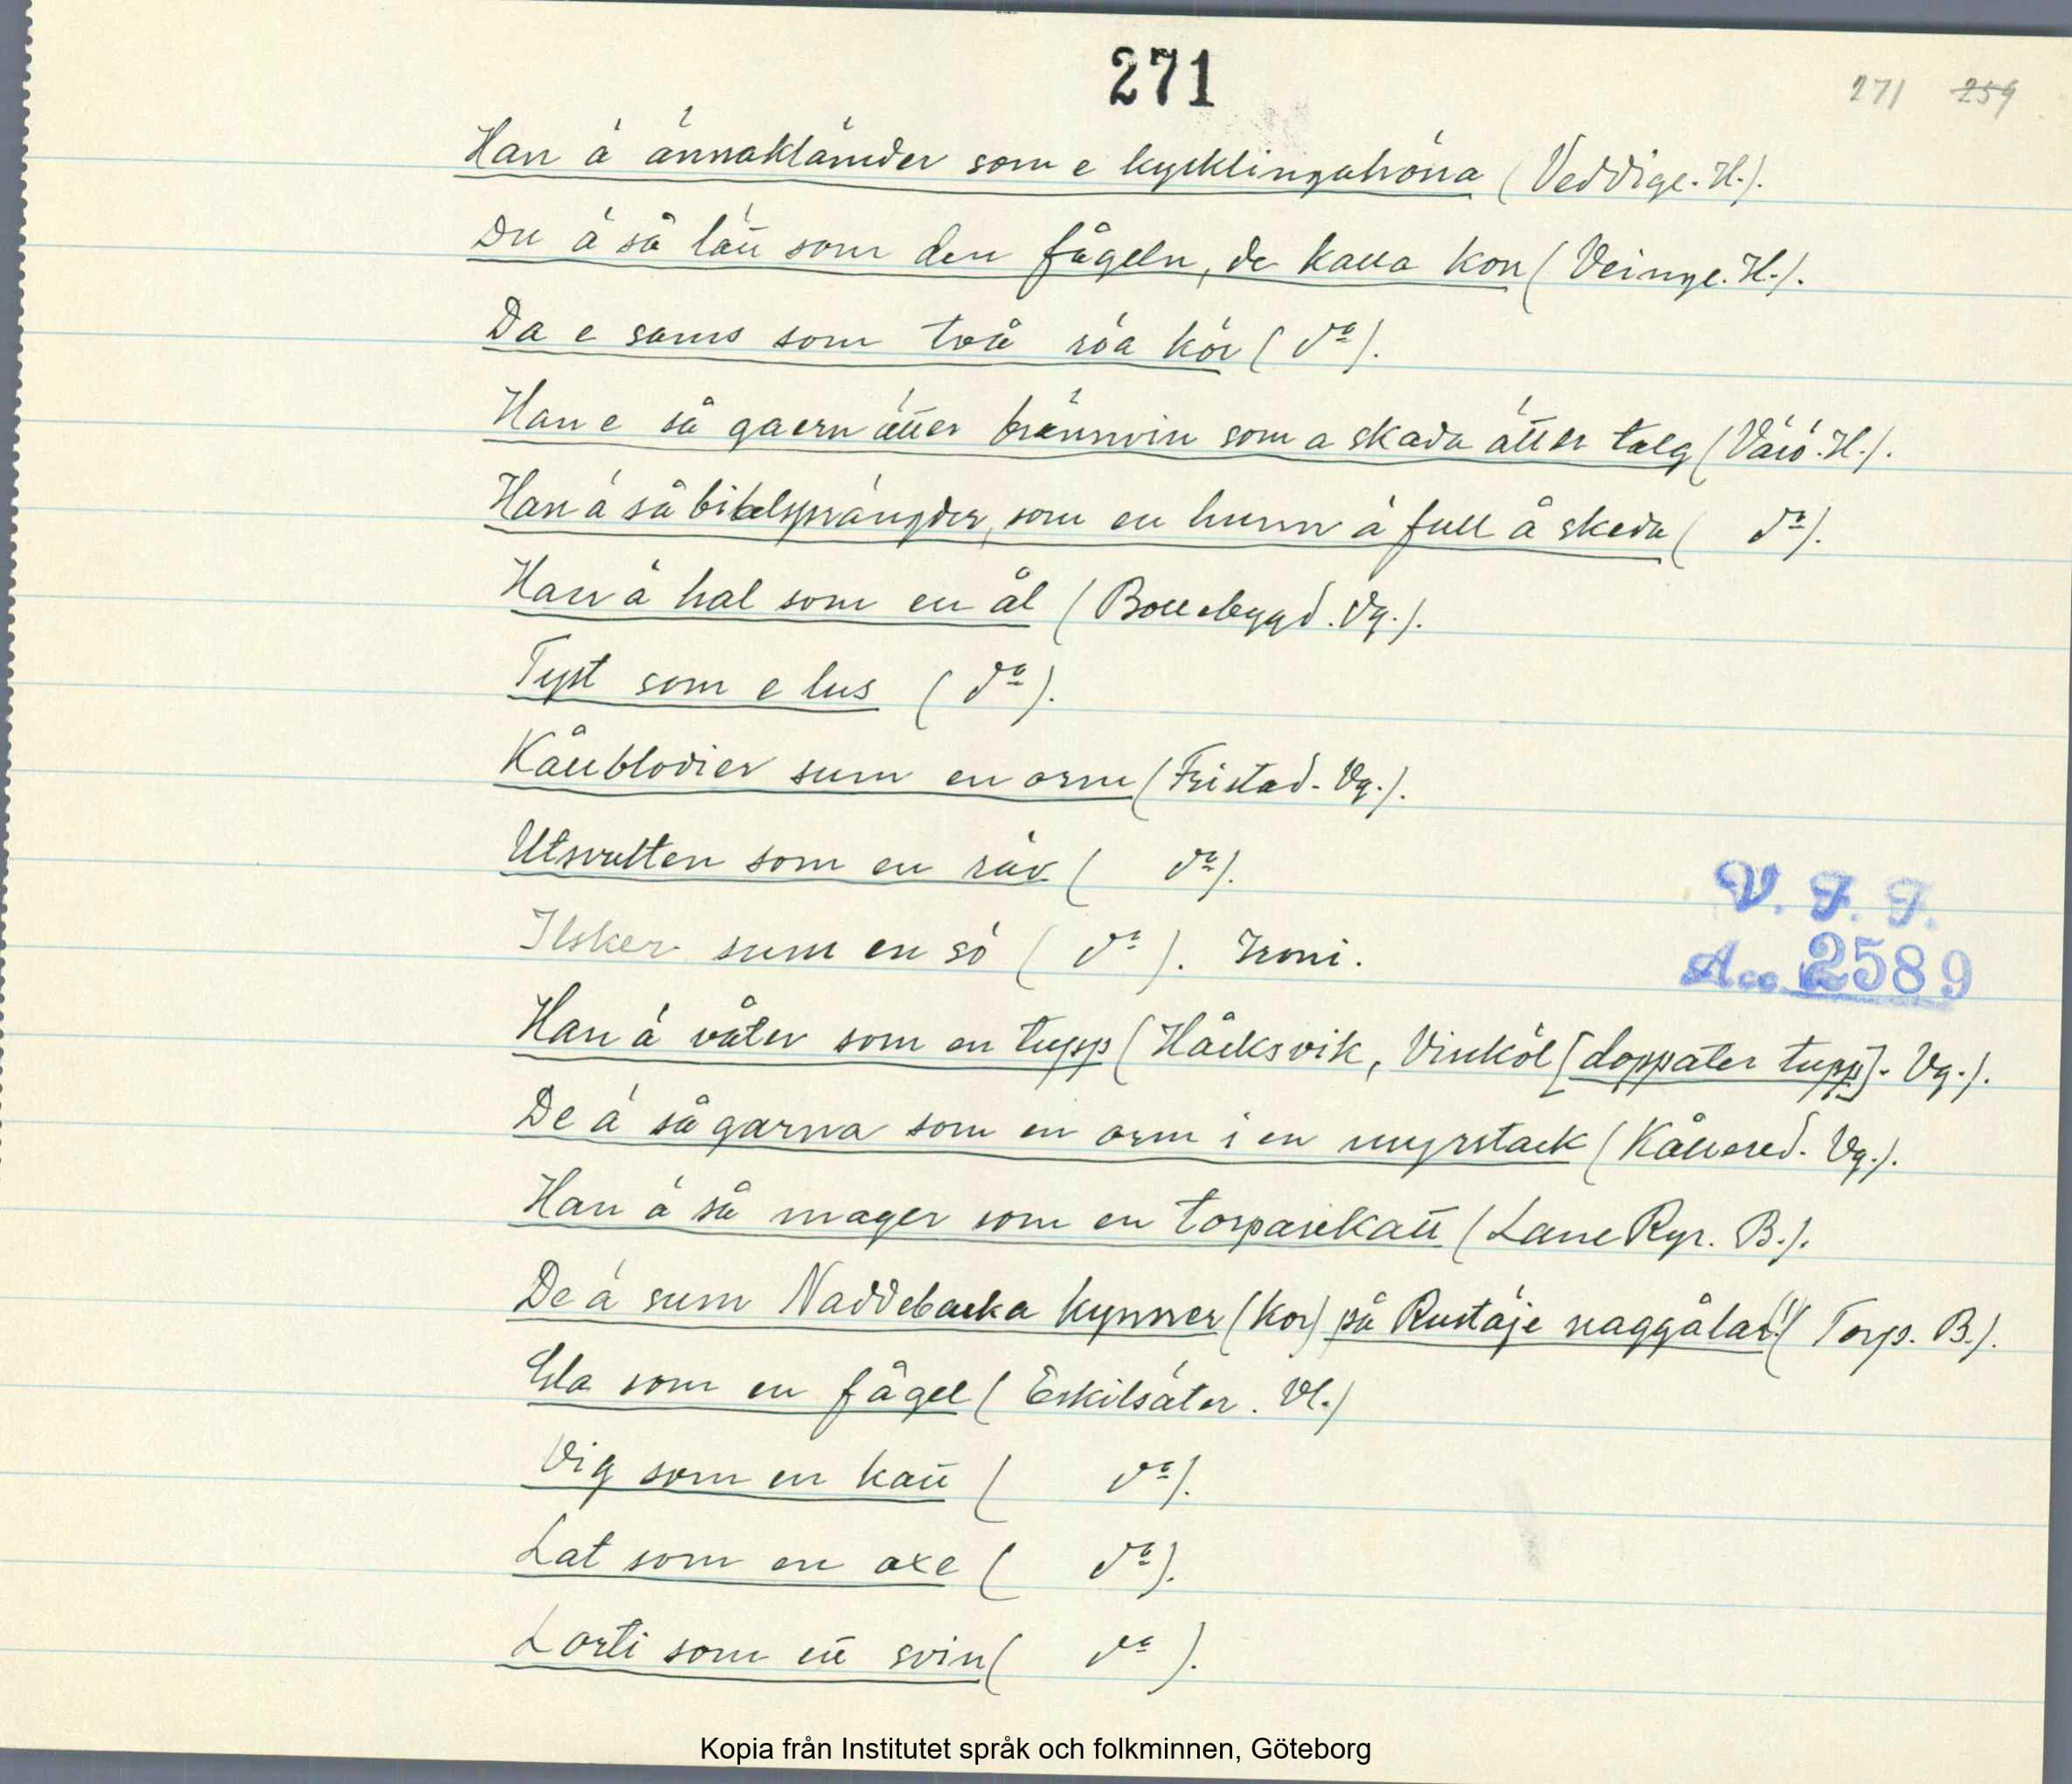 271
271 259
Han ä ännakländer som e kycklingahöna (Veddige. H.).
Du ä så lätt som den fågeln, de kalla kon (Veinge. H.).
Da e sams som två röa kör (dº).
Han e så gaern ätter brännvin som a skada ätter talg (Värö. H.).
Han ä så bibelsprängder, som en hunn ä full å skeda ( dº).
Han ä hal som en ål (Bollebygd. Vg.).
Tyst som e lus (dº).
Kållblodier sum en orm (Fristad. Vg.).
Utsvulten som en räv ( dº).
Ilsker sum en so (dº). Ironi.
V. F. F.
Acc. 2589
Han ä våter som en tupp (Håcksvik, Vinköl [doppater tupp]. Vg.).
De ä så garna som en orm i en myrstack (Kållered. Vg.).
Han ä så mager som en torparekatt (Lane Ryr. B.).
De ä sum Naddebacka kynner (kor) på Rustäje naggålar! (Torp. B.).
Gla som en fågel (Eskilsäter. Vl.)
Vig som en katt ( dº).
Lat som en oxe ( dº).
Lorti som ett svin ( dº ).
Kopia från Institutet språk och folkminnen, Göteborg